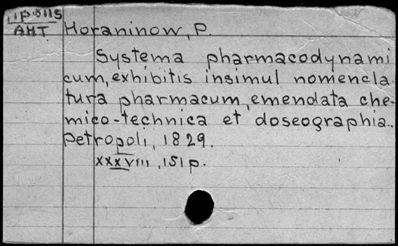 AMT
Horaninow, P.
Systema pharmacodynami
cum, exhibitis insimul nomencla-
tura pharmacum, emendata che-
mico-technica et doseographia..
Petropoli, 1829.
XXXVIII, 151p.